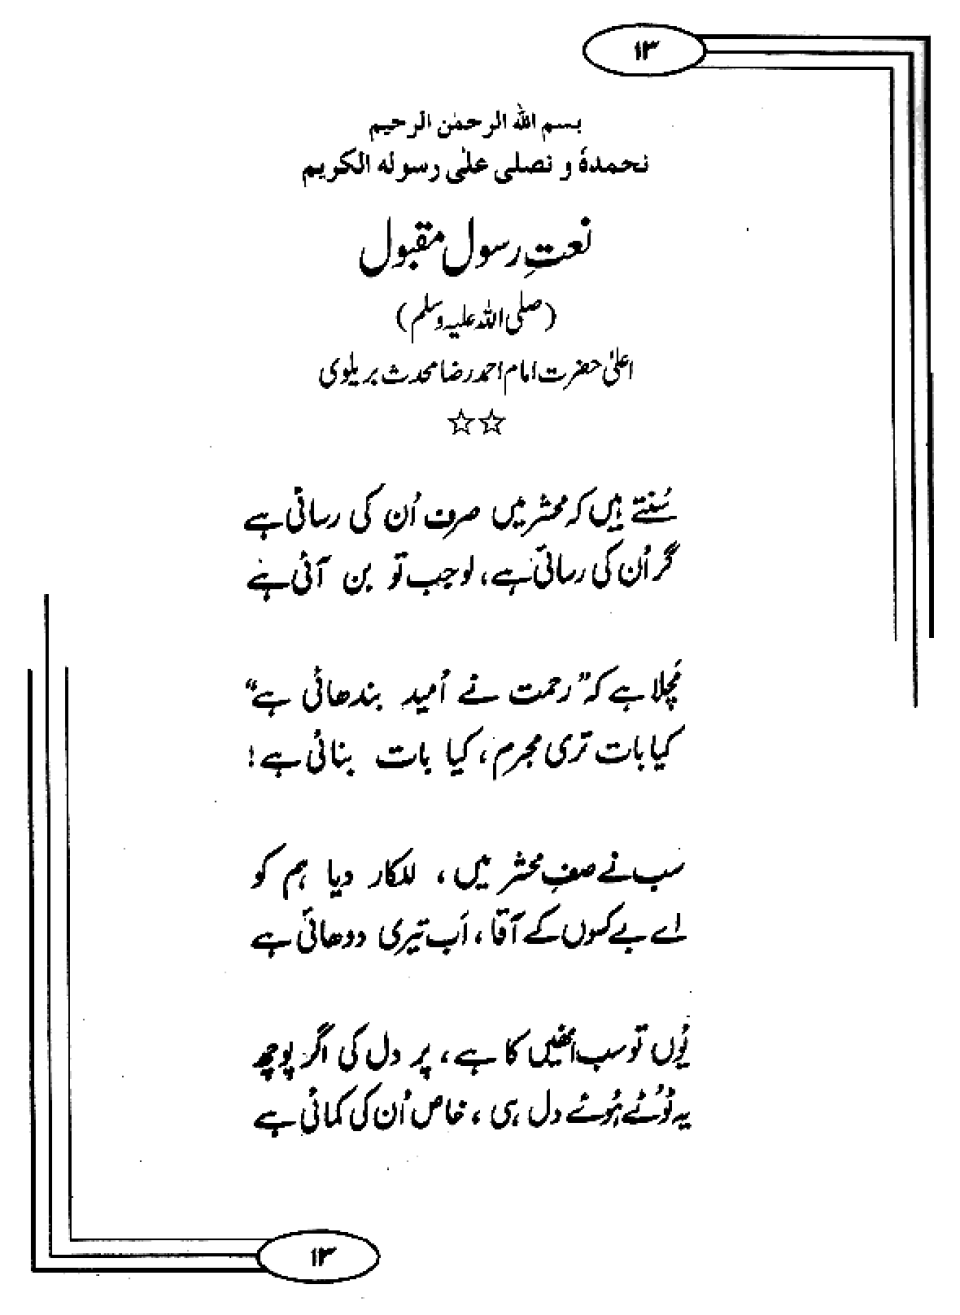 ۱۳
بسم اللہ الرحمٰن الرحیم
نحمدہٗ و نصلی علٰی رسولہ الکریم
نعتِ رسول مقبول
(صلی اللہ علیہ وسلم)
اعلیٰ حضرت امام احمد رضا محدث بریلوی
☆☆
سُنتے ہیں کہ محشر میں صرف اُن کی رسائی ہے
گر اُن کی رسائی ہے، لو جب تو بن آئی ہے
مچلا ہے کہ ”رحمت نے اُمید بندھائی ہے“
کیا بات تری مجرم، کیا بات بنائی ہے!
سب نے صفِ محشر میں، للکار دیا ہم کو
اے بے کسوں کے آقا، اَب تیری دوھائی ہے
یُوں تو سب اُنھیں کا ہے، پر دل کی اگر پوچھ
یہ ٹوٹے ہُوئے دل ہی، خاص اُن کی کمائی ہے
۱۳